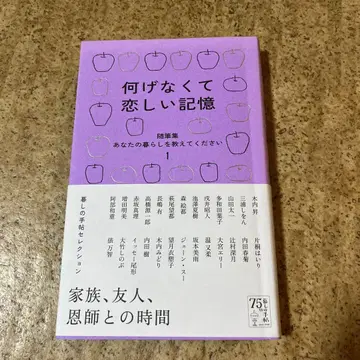 何げなくて
恋しい記憶
随筆集
あなたの暮らしを教えてください
1
木内 昇
三浦しをん
山田太一
多和田葉子
戌井昭人
池澤夏樹
森 絵都
萩尾望都
長嶋 有
高橋源一郎
赤坂真理
増田明美
阿部和重
片桐はいり
内田春菊
辻村深月
大宮エリー
温 又柔
坂本美雨
ジェーン・スー
望月衣塑子
木内みどり
内田 樹
イッセー尾形
大竹しのぶ
俵 万智
暮しの手帖セレクション
家族、友人、
恩師との時間
75
暮しの手帖